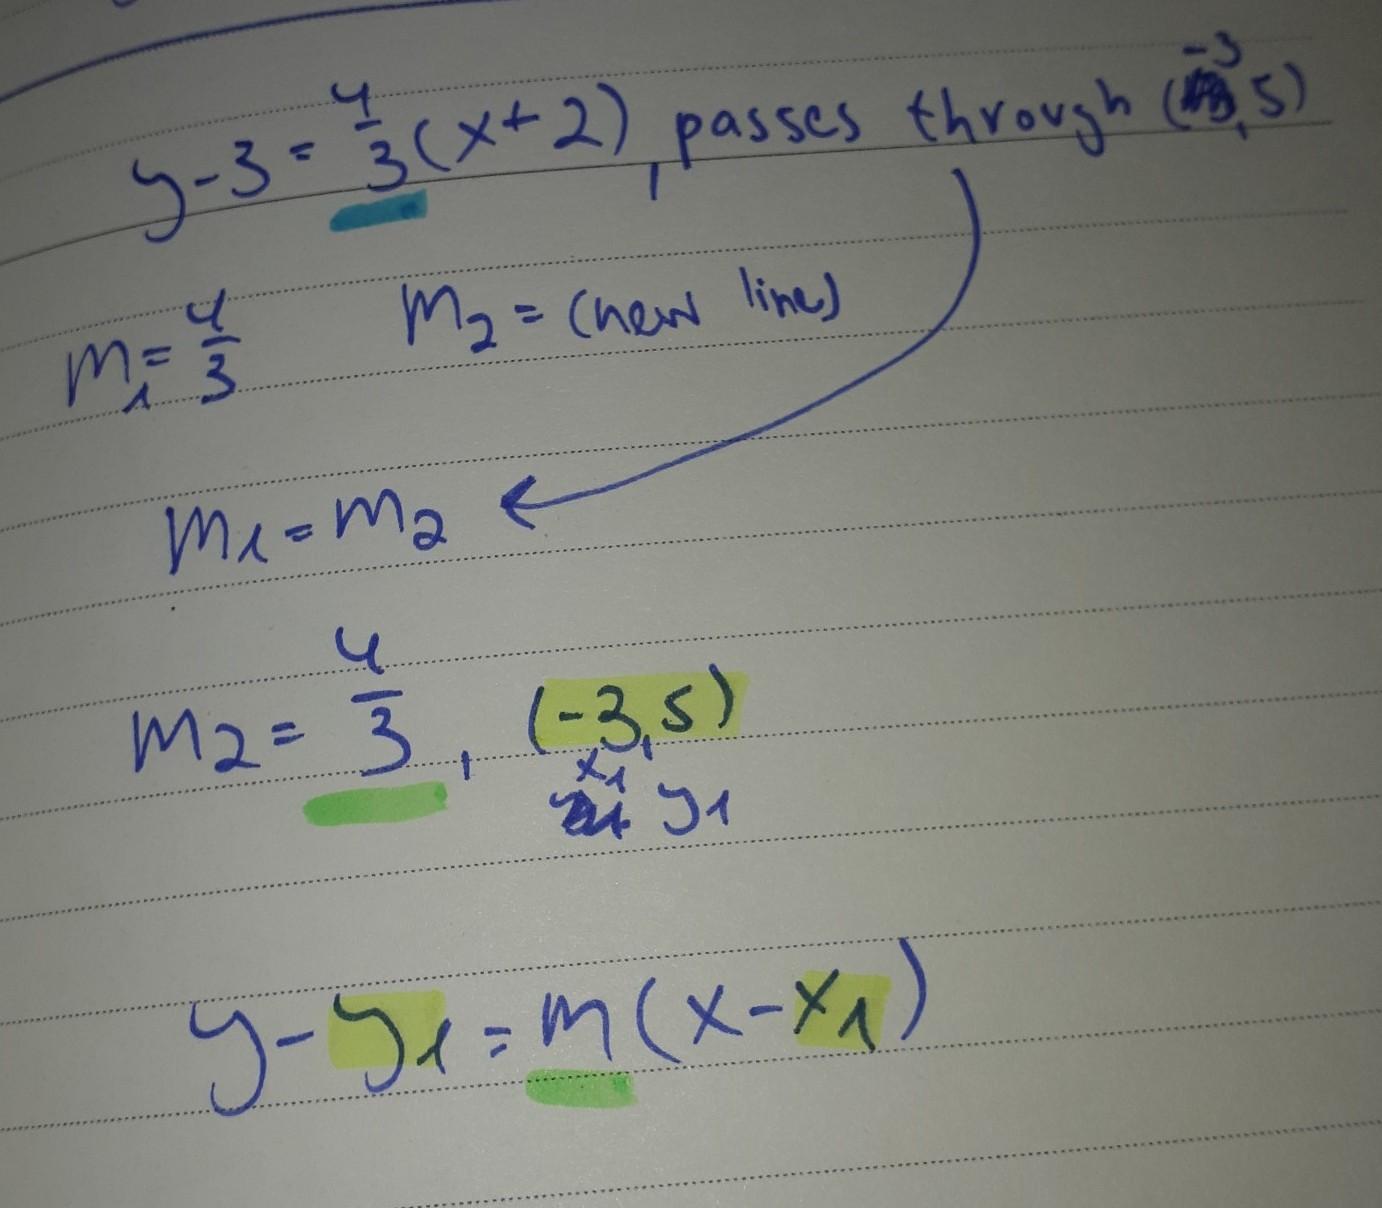 y-3 = 4/3 (x+2), passes through (-3, 5)
m₁ = 4/3 m₂ = (new line)
m₁ = m₂
m₂ = 4/3, (-3, 5)
x₁
y₁
y - y₁ = m (x - x₁)